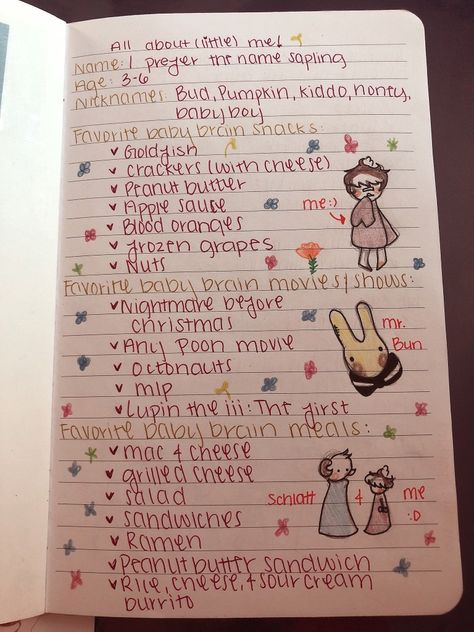 All about (little) me!
Name: I prefer the name sapling
Age: 3-6
Nicknames: Bud, Pumpkin, kiddo, honey,
baby boy
Favorite baby brain snacks:
Goldfish
crackers (with cheese)
Peanut butter
Apple sause
Blood oranges
me:)
frozen grapes
Nuts
Favorite baby brain movies/shows:
Nightmare before
christmas
mr.
Bun
Any Poon movie
octonauts
mlp
Lupin the iii: The first
Favorite baby brain meals:
mac & cheese
grilled cheese
salad
Schlatt & me
:D
sandwiches
Ramen
Peanut butter sandwich
Rice, cheese, & sour cream
burrito